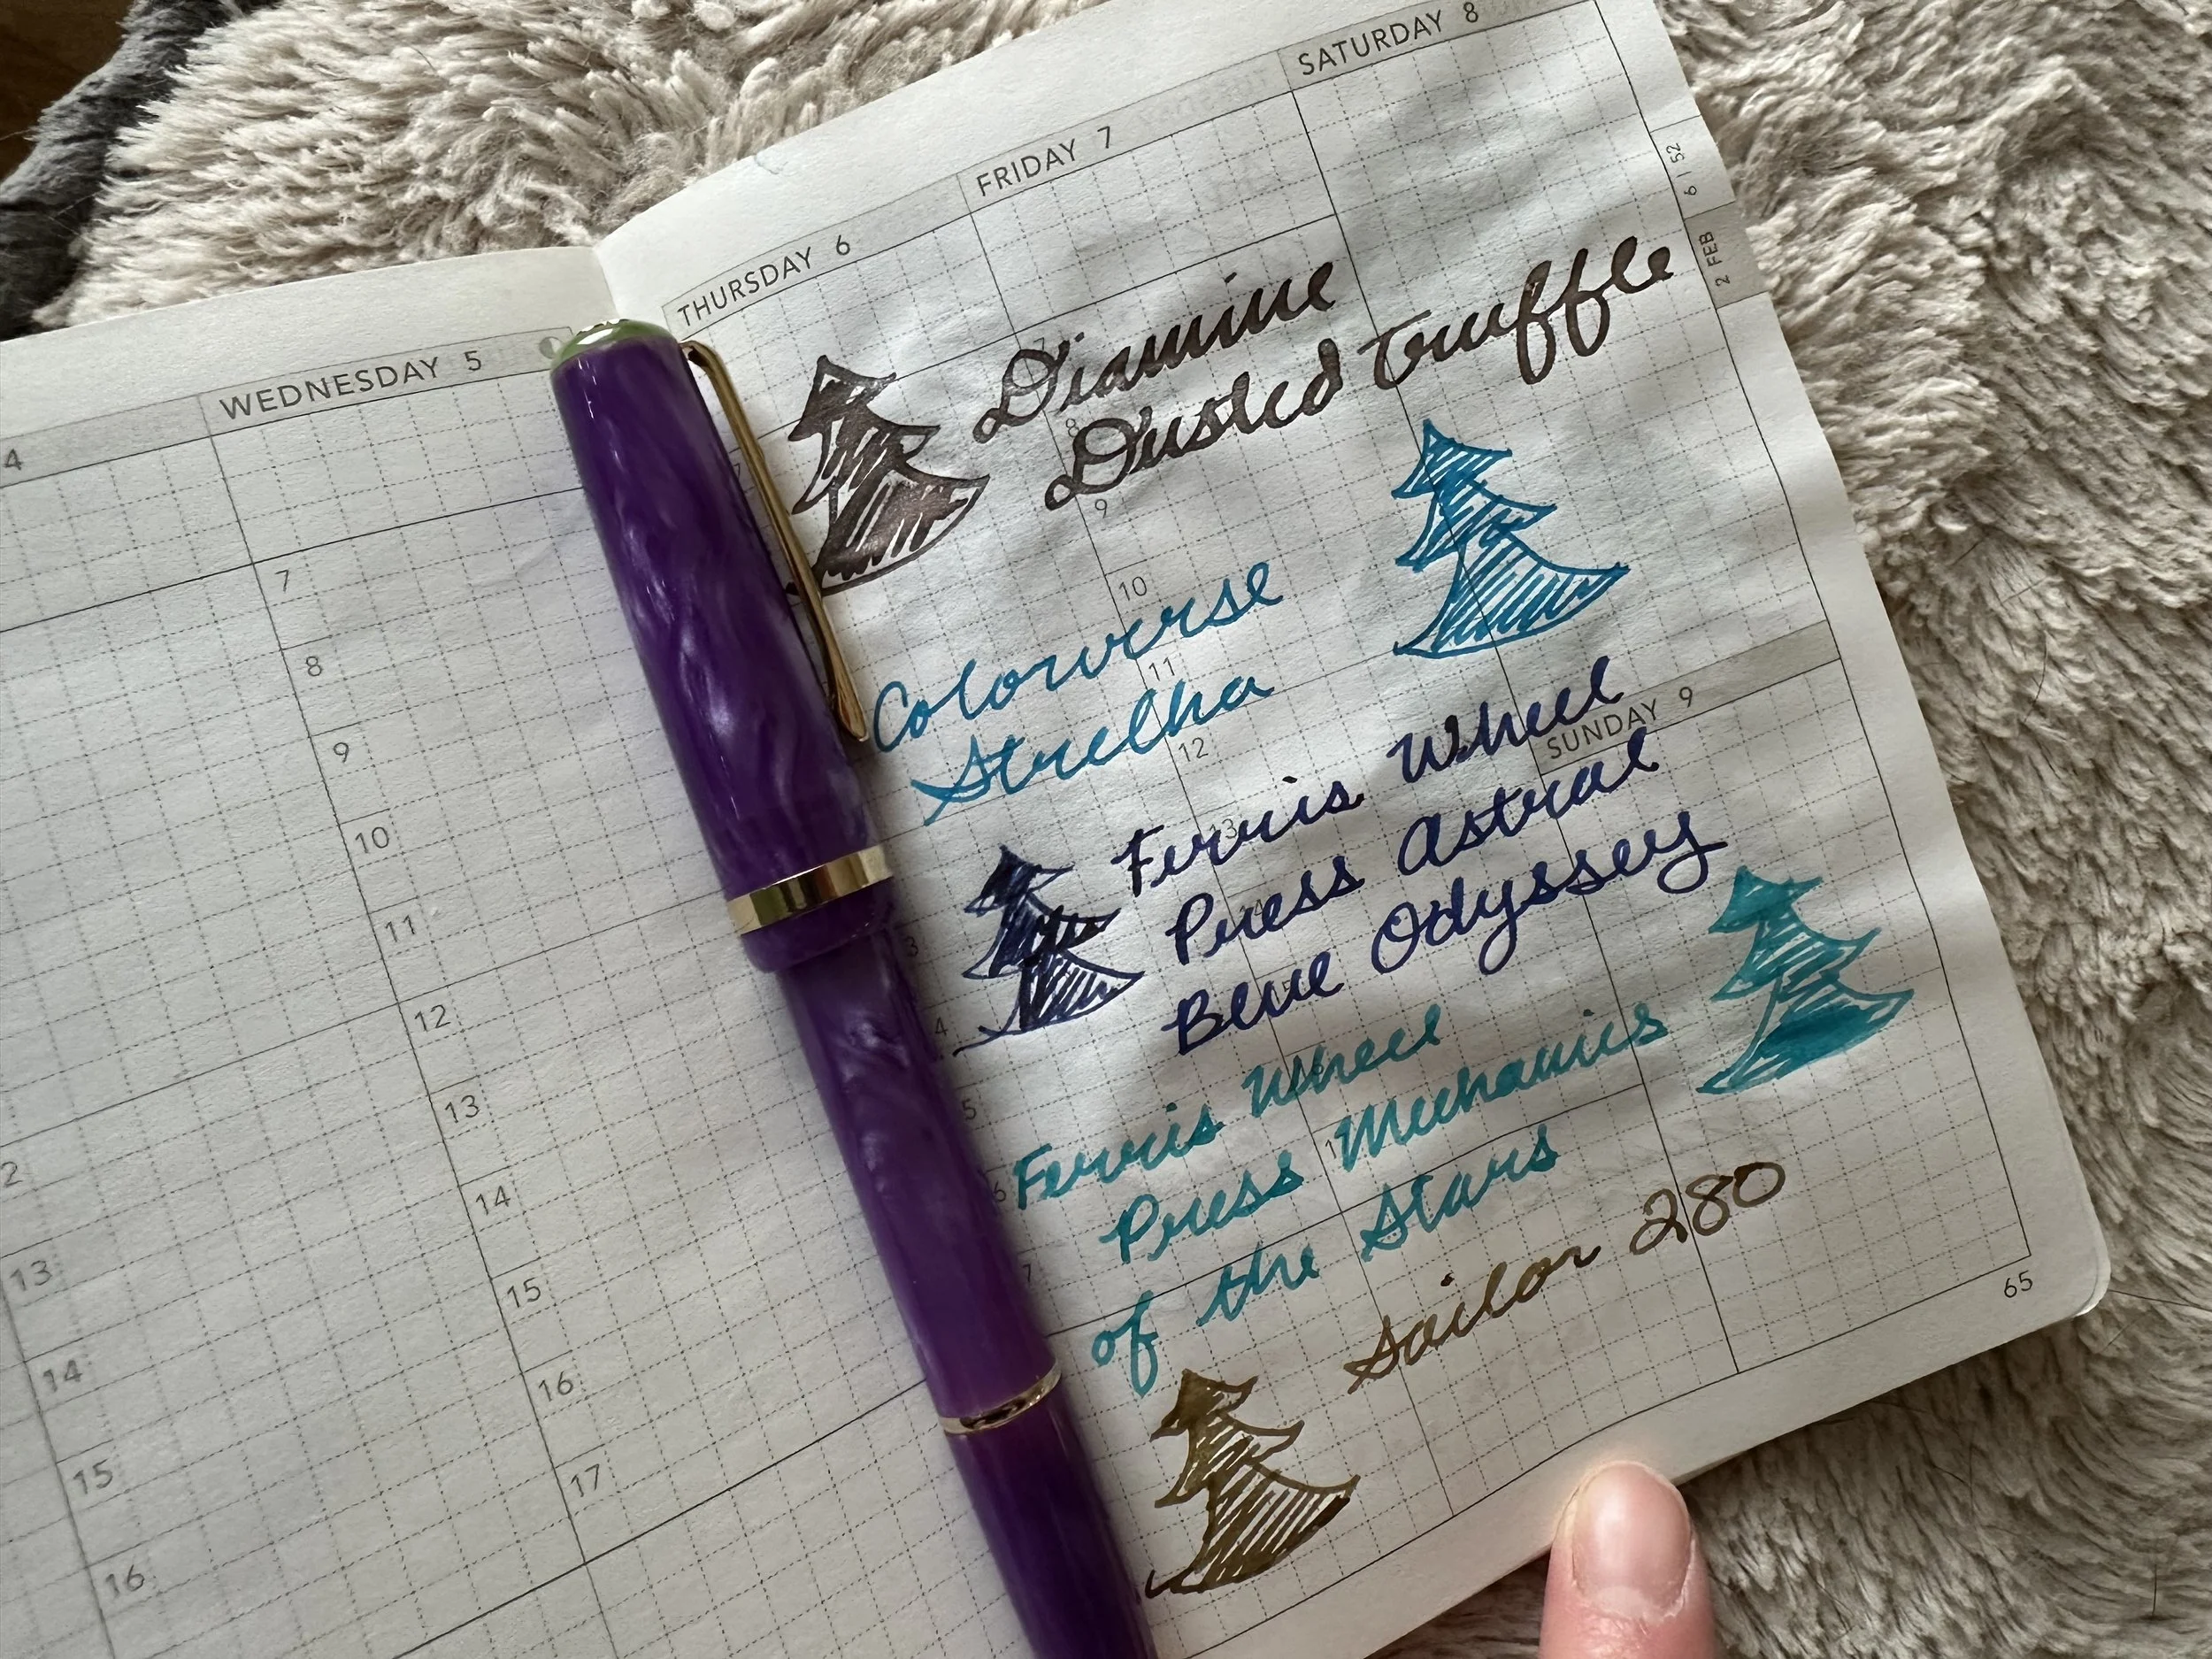 4
WEDNESDAY 5
7
8
9
10
11
12
13
14
15
16
17
2
13
14
15
16
THURSDAY 6
FRIDAY 7
SATURDAY 8
6 | 52
2 FEB
Diamine
Dusted Truffle
7
8
9
10
11
12
13
Colorverse
Strelka
SUNDAY 9
Ferris Wheel
Press Astral
Blue Odyssey
Ferris Wheel
Press Mechanics
of the Stars
Sailor 280
7
3
4
5
6
7
65